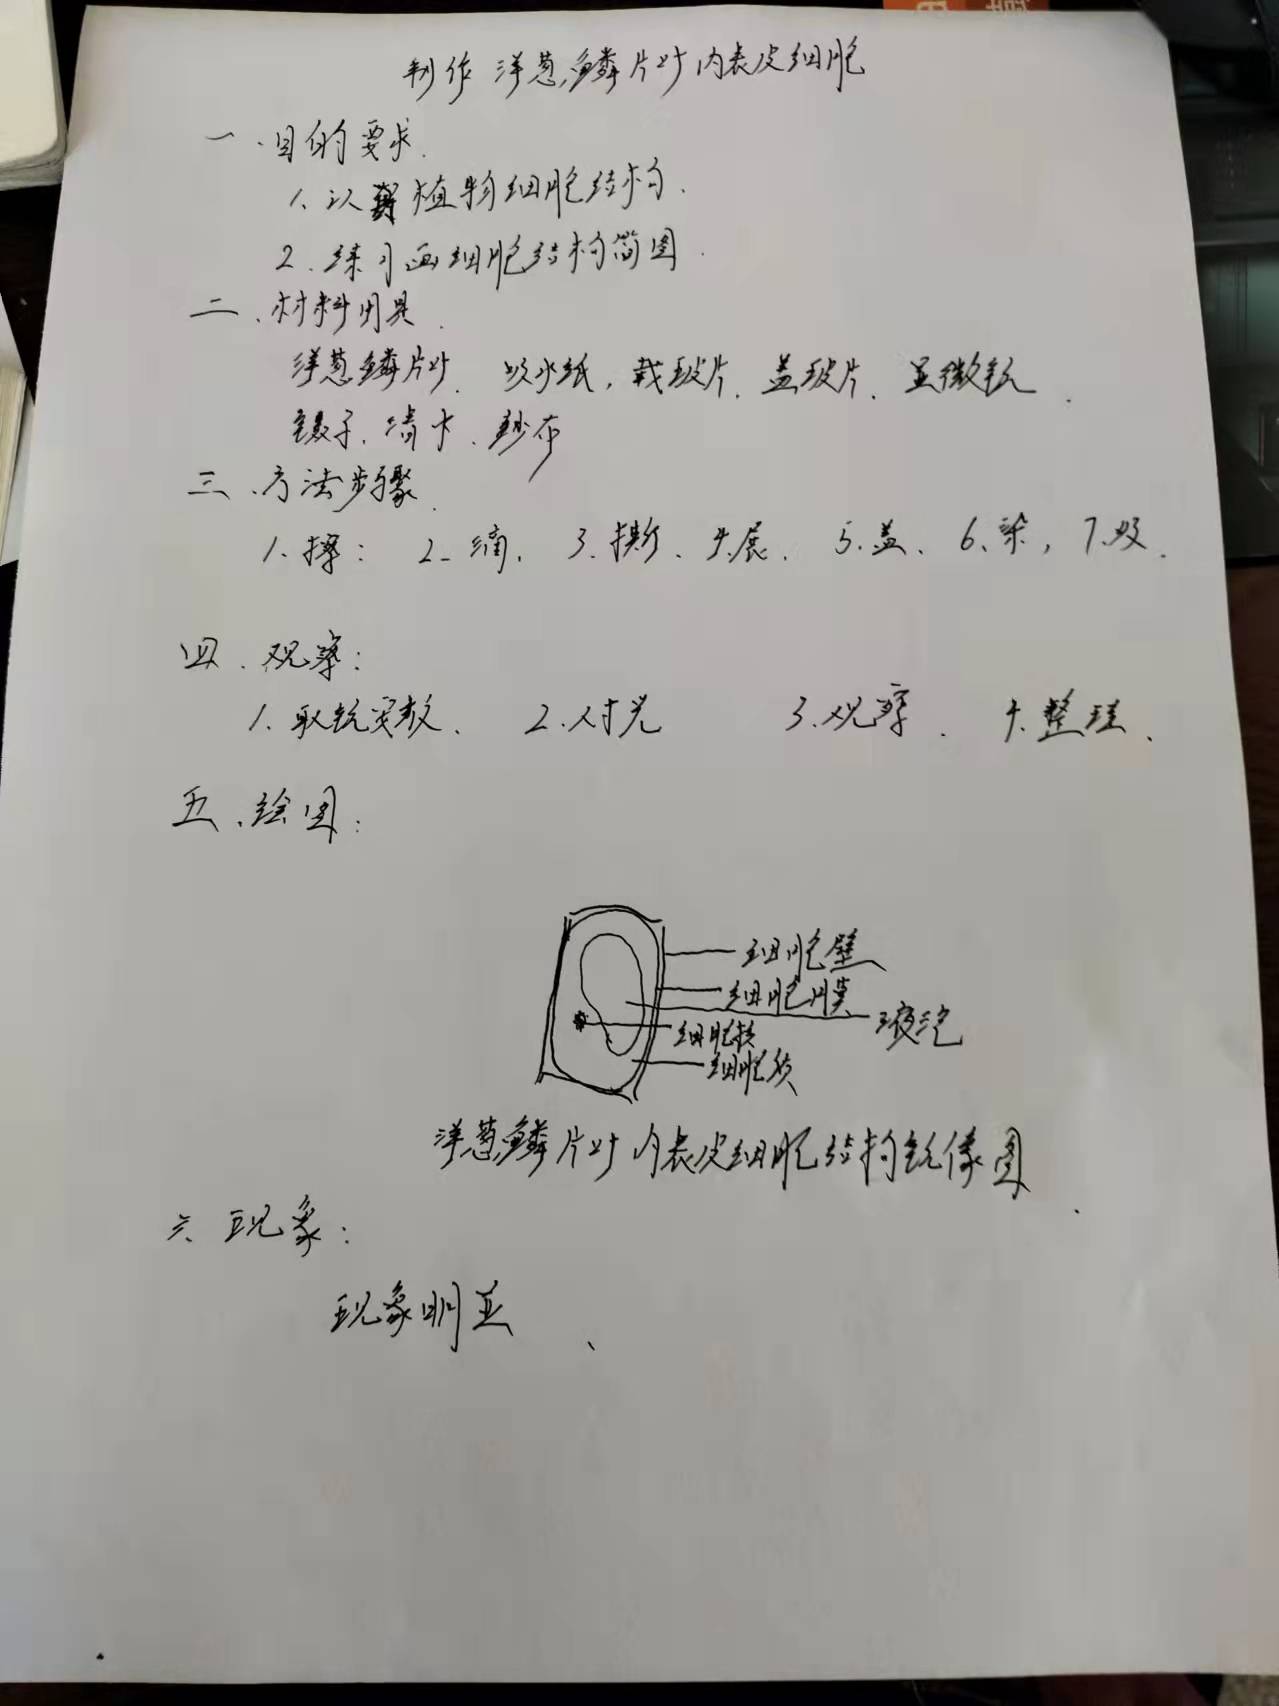 制作洋葱鳞片叶内表皮细胞
一、目的要求.
1、认识植物细胞结构.
2.练习画细胞结构简图.
二、材料用具.
洋葱鳞片叶、吸水纸,载玻片、盖玻片、显微镜、
镊子、清水、纱布
三、方法步骤
1、擦: 2、滴, 3、撕、4.展、 5.盖、6、染, 7、吸.
四、观察:
1、取镜安放、 2.对光 3.观察、 4.整理、
五、绘图:
细胞壁
细胞膜
液泡
细胞核
细胞质
洋葱鳞片叶内表皮细胞结构镜像图.
六、现象:
现象明显、